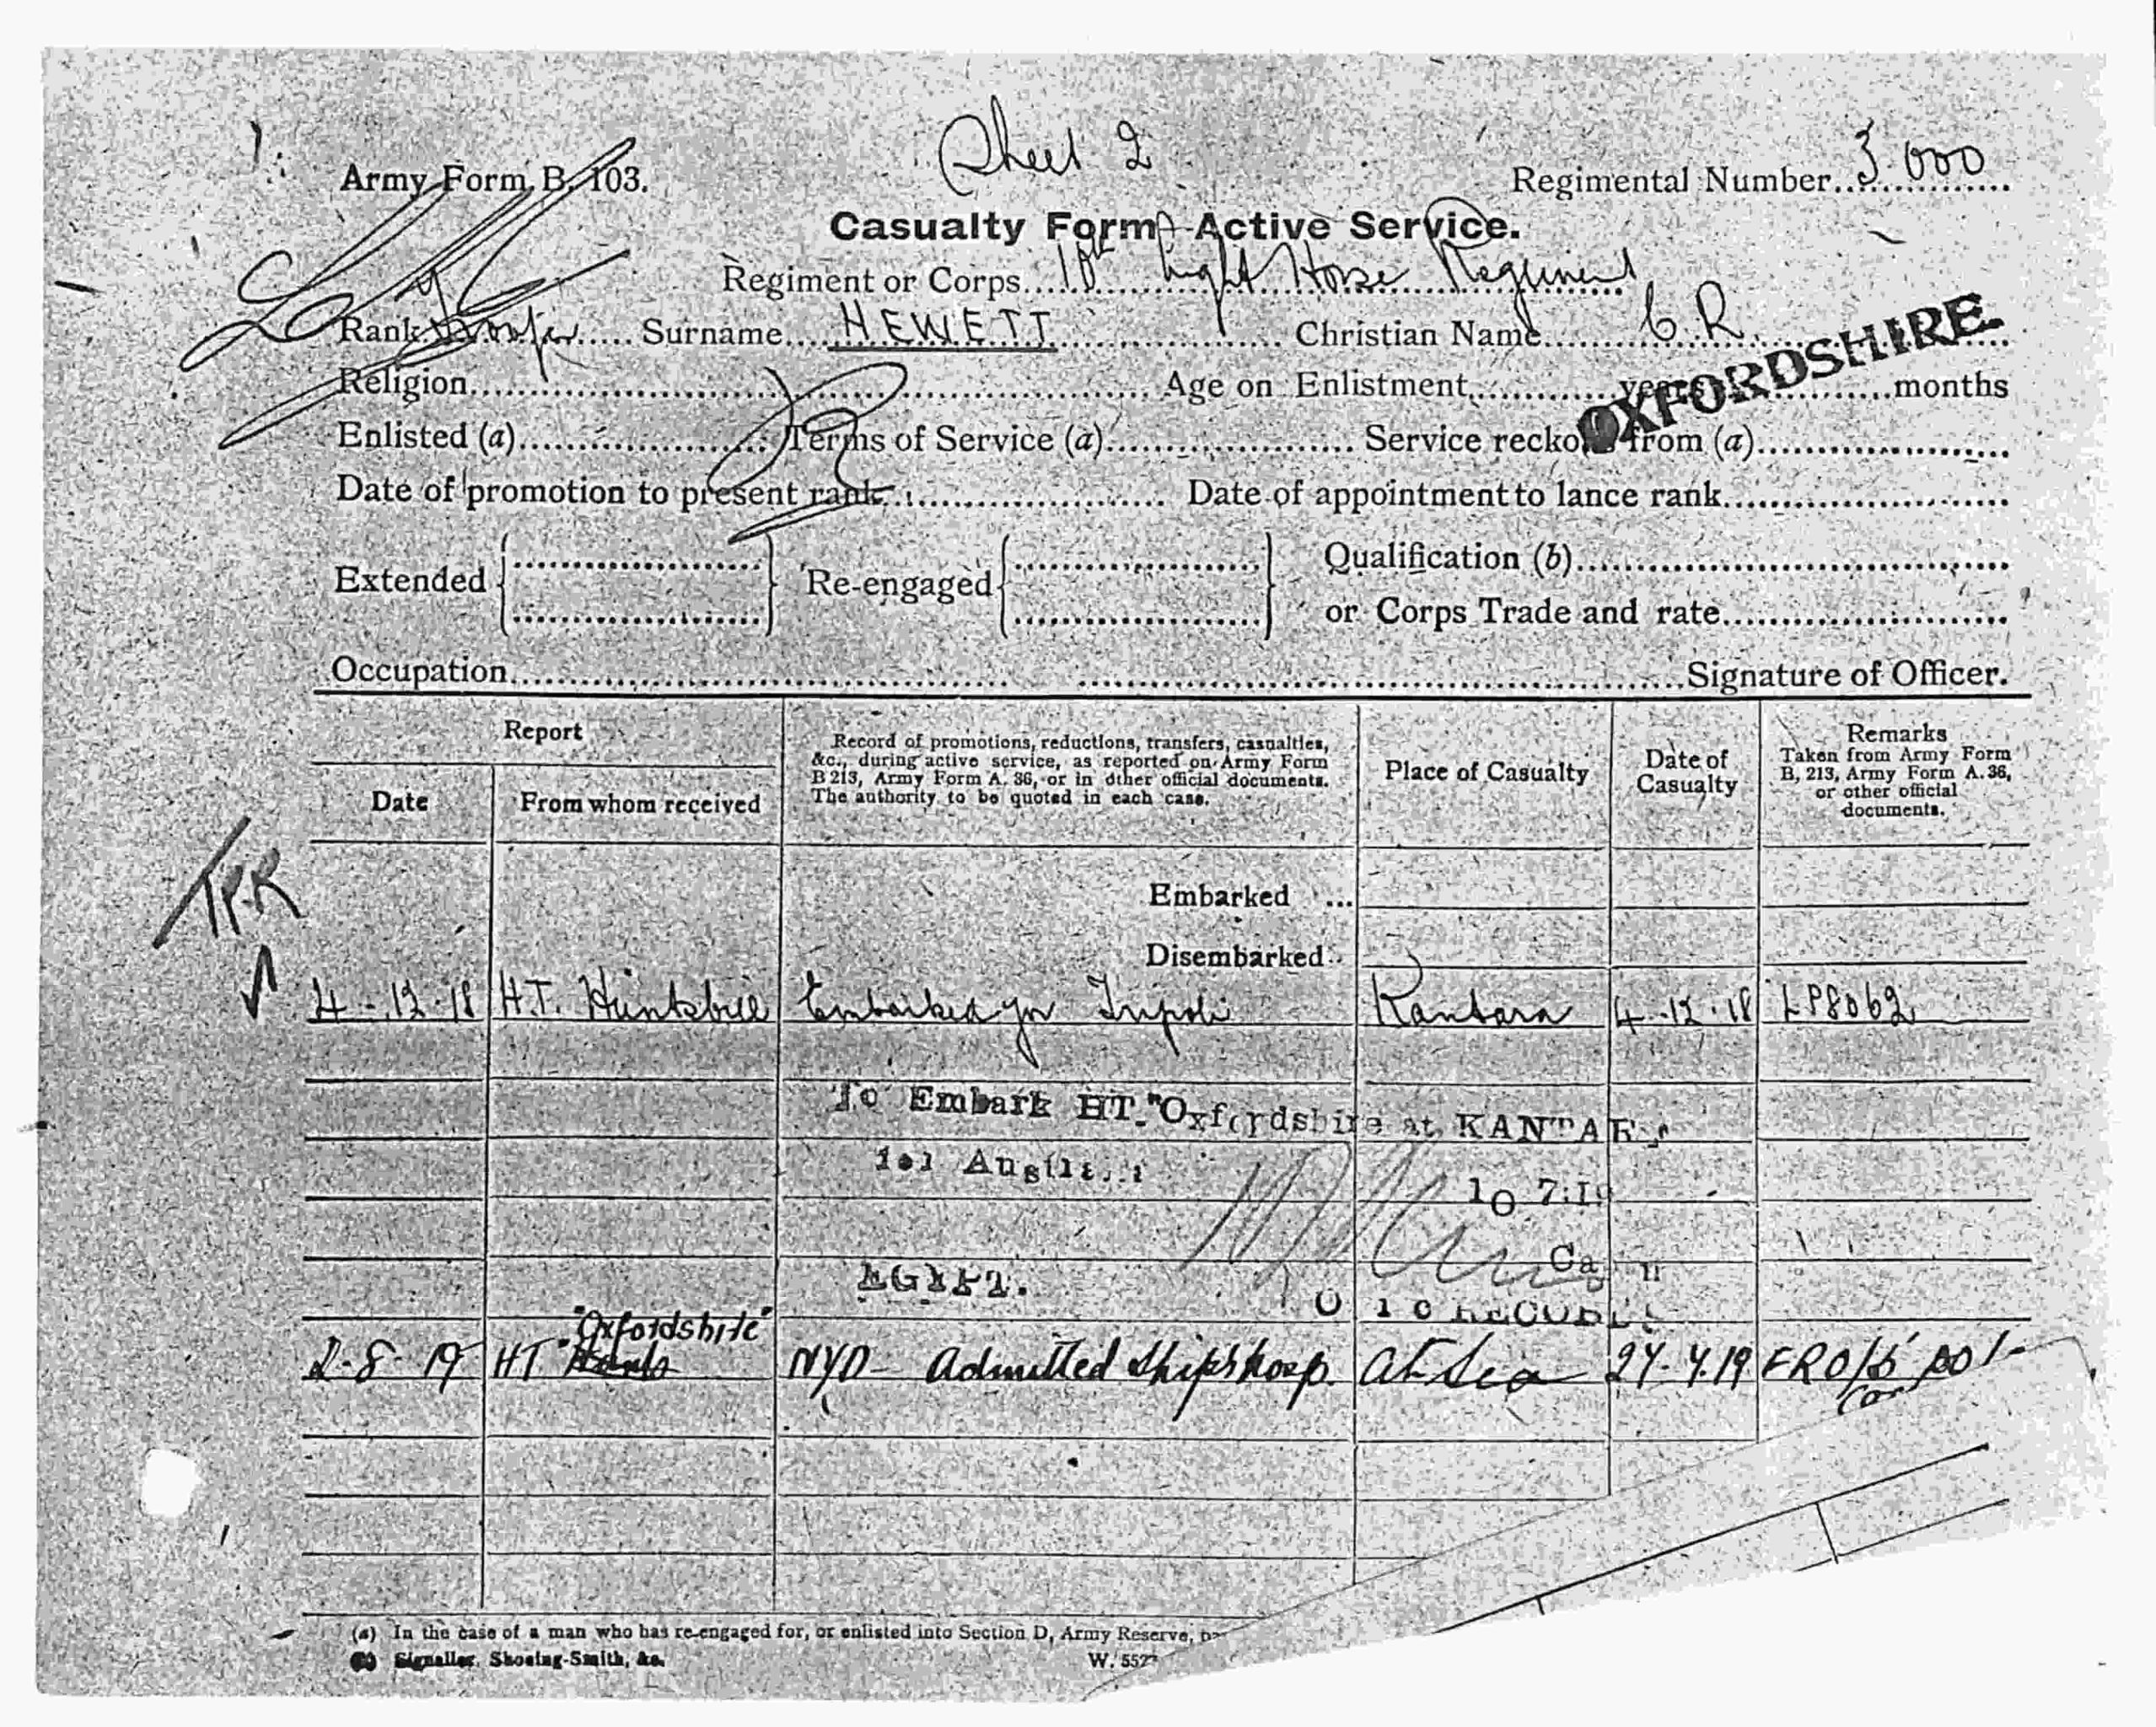 Sheet 2
Army Form B. 103.
Regimental Number 3000
Casualty Form - Active Service.
Regiment or Corps 10th Light Horse Regiment
Rank Trooper Surname HEWETT Christian Name C.R.
OXFORDSHIRE.
Religion Age on Enlistment years months
Enlisted (a) Terms of Service (a) Service reckons from (a)
Date of promotion to present rank Date of appointment to lance rank
Extended Re-engaged Qualification (b)
or Corps Trade and rate
Occupation Signature of Officer.
Report
Date From whom received
Record of promotions, reductions, transfers, casualties,
&c., during active service, as reported on Army Form
B 213, Army Form A. 36, or in other official documents.
The authority to be quoted in each case.
Place of Casualty
Date of
Casualty
Remarks
Taken from Army Form
B, 213, Army Form A. 36,
or other official
documents.
TPR
Embarked ...
Disembarked
4-12-18 H.T. Huntsbill Embarked for Tripoli Kantara 4-12-18 LP8062
To Embark HT. "Oxfordshire at KANTARA
10 7.19
EGYPT.
"Oxfordshire"
2-8-19 HT NYD - Admitted Ships hosp. At Sea 27.7.19
(a) In the case of a man who has re-engaged for, or enlisted into Section D, Army Reserve,
(b) Signaller, Shoeing-Smith, &c.
W. 552